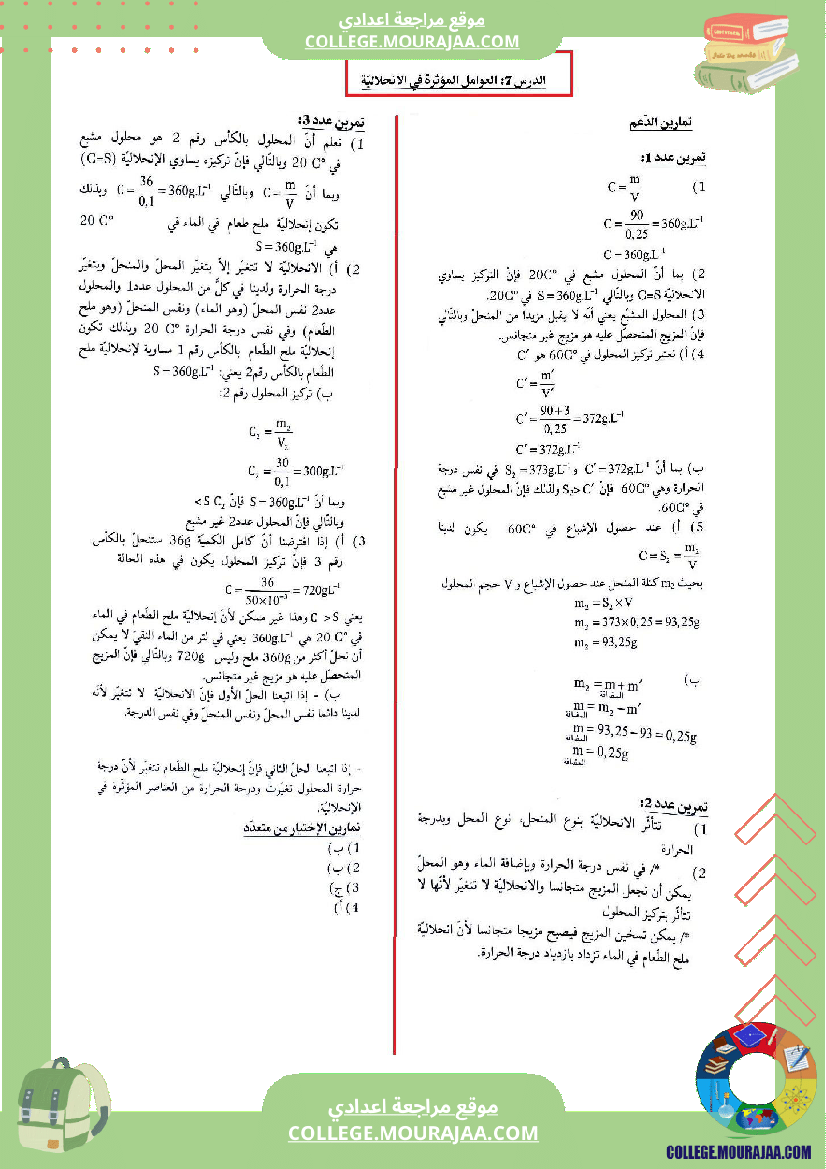 موقع مراجعة اعدادي
COLLEGE.MOURAJAA.COM
الدرس 7: العوامل المؤثرة في الانحلاليّة
تمارين الدّعم
تمرين عدد 1:
1) C = m/V
C = 90/0,25 = 360g.L⁻¹
C = 360g.L⁻¹
2) بما أنّ المحلول مشبع في 20C° فإنّ التركيز يساوي
الانحلاليّة C=S وبالتّالي S = 360g.L⁻¹ في 20C°.
3) المحلول المشبّع يعني أنّه لا يقبل مزيدا من المنحلّ وبالتّالي
فإنّ المزيج المتحصّل عليه هو مزيج غير متجانس.
4) أ) نعتبر تركيز المحلول في 60C° هو C′
C′ = m′/V′
C′ = 90+3/0,25 = 372g.L⁻¹
C′ = 372g.L⁻¹
ب) بما أنّ C′ = 372g.L⁻¹ و S₂ = 373g.L⁻¹ في نفس درجة
الحرارة وهي 60C° فإنّ S₂> C′ ولذلك فإنّ المحلول غير مشبع
في 60C°.
5) أ) عند حصول الإشباع في 60C° يكون لدينا
C = S₂ = m₂/V
بحيث m₂ كتلة المنحل عند حصول الإشباع و V حجم المحلول
m₂ = S₂ × V
m₂ = 373×0,25 = 93,25g
m₂ = 93,25g
ب) m₂ = m + m′
المضافة
m = m₂ − m′
المضافة
m = 93,25 − 93 = 0,25g
المضافة
m = 0,25g
المضافة
تمرين عدد 2:
1) تتأثّر الانحلاليّة بنوع المنحل، نوع المحل وبدرجة
الحرارة
2) */ في نفس درجة الحرارة وبإضافة الماء وهو المحلّ
يمكن أن نجعل المزيج متجانسا والانحلاليّة لا تتغيّر لأنّها لا
تتأثّر بتركيز المحلول
*/ يمكن تسخين المزيج فيصبح مزيجا متجانسا لأنّ انحلاليّة
ملح الطّعام في الماء تزداد بازدياد درجة الحرارة.
تمرين عدد 3:
1) نعلم أنّ المحلول بالكأس رقم 2 هو محلول مشبع
في 20 C° وبالتّالي فإنّ تركيزه يساوي الإنحلاليّة (C=S)
وبما أنّ C = m/V وبالتّالي C = 36/0,1 = 360g.L⁻¹ وبذلك
تكون إنحلاليّة ملح طعام في الماء في 20 C°
هي S = 360g.L⁻¹
2) أ) الانحلاليّة لا تتغيّر إلاّ بتغيّر المحلّ والمنحلّ وبتغيّر
درجة الحرارة ولدينا في كلّ من المحلول عدد1 والمحلول
عدد2 نفس المحلّ (وهو الماء) ونفس المنحلّ (وهو ملح
الطّعام) وفي نفس درجة الحرارة 20 C° وبذلك تكون
إنحلاليّة ملح الطّعام بالكأس رقم 1 مساوية لإنحلاليّة ملح
الطّعام بالكأس رقم2 يعني: S = 360g.L⁻¹
ب) تركيز المحلول رقم 2:
C₂ = m₂/V₂
C₂ = 30/0,1 = 300g.L⁻¹
وبما أنّ S = 360g.L⁻¹ فإنّ C₂ < S
وبالتّالي فإنّ المحلول عدد2 غير مشبع
3) أ) إذا افترضنا أنّ كامل الكميّة 36g ستنحلّ بالكأس
رقم 3 فإنّ تركيز المحلول، يكون في هذه الحالة
C = 36/50×10⁻³ = 720gL⁻¹
يعني C > S وهذا غير ممكن لأنّ إنحلاليّة ملح الطّعام في الماء
في 20 C° هي 360g.L⁻¹ يعني في لتر من الماء النقيّ لا يمكن
أن نحلّ أكثر من 360g ملح وليس 720g وبالتّالي فإنّ المزيج
المتحصّل عليه هو مزيج غير متجانس.
ب) - إذا اتبعنا الحلّ الأول فإنّ الانحلاليّة لا تتغيّر لأنّه
لدينا دائما نفس المحلّ ونفس المنحلّ وفي نفس الدرجة.
- إذا اتبعنا الحلّ الثاني فإنّ إنحلاليّة ملح الطّعام تتغيّر لأنّ درجة
حرارة المحلول تغيّرت ودرجة الحرارة من العناصر المؤثّرة في
الإنحلاليّة.
تمارين الإختبار من متعدّد
1) ب)
2) ب)
3) ج)
4) أ)
موقع مراجعة اعدادي
COLLEGE.MOURAJAA.COM
COLLEGE.MOURAJAA.COM